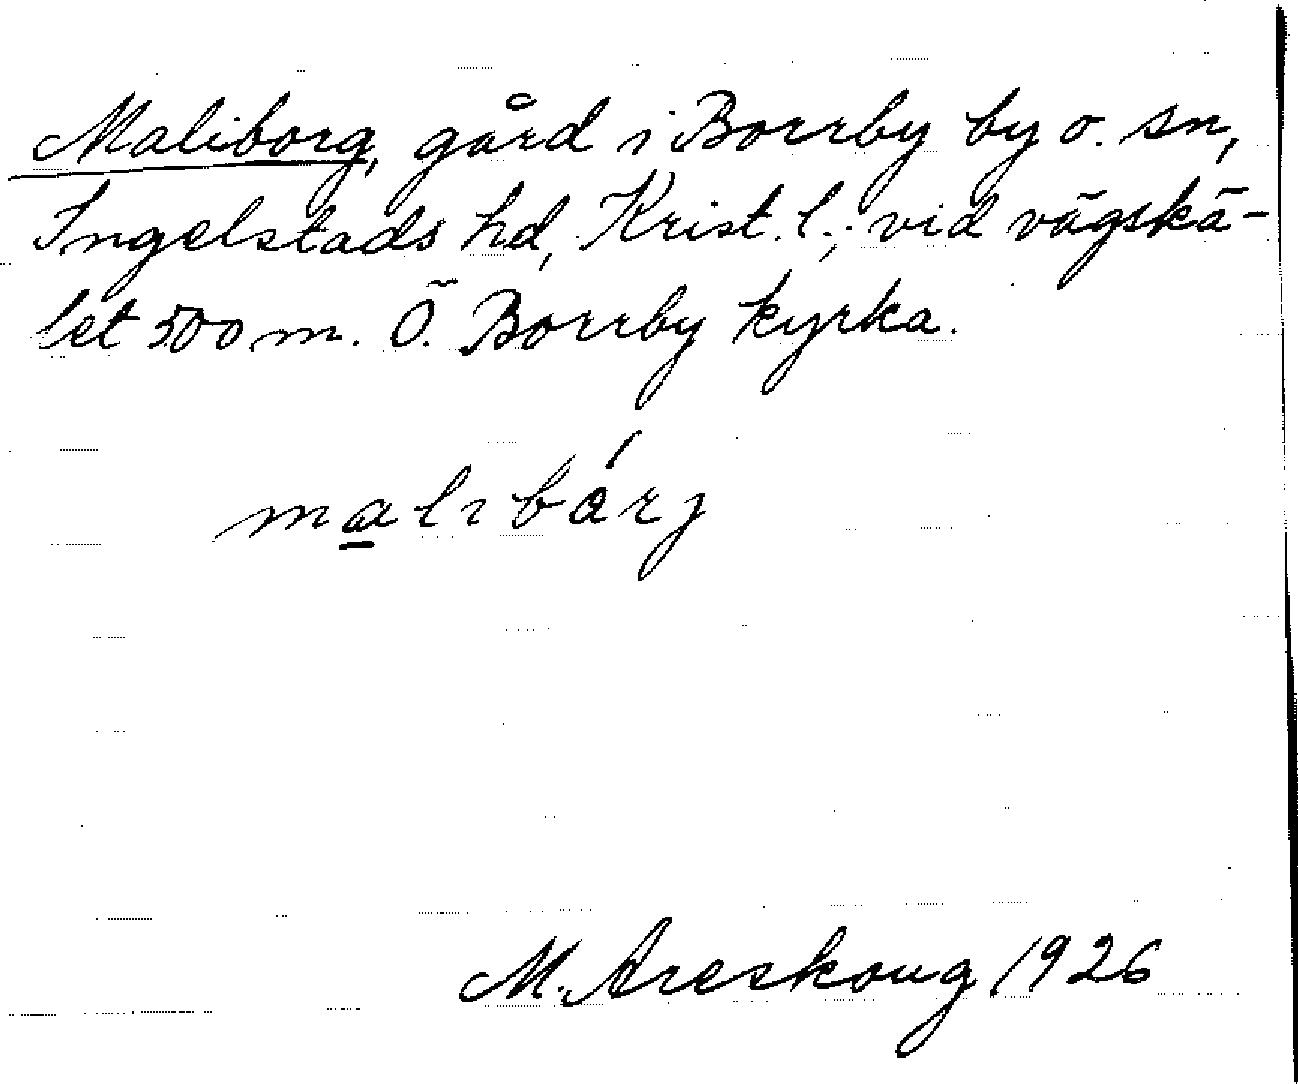 Maliborg, gård i Borrby by o. sn,
Ingelstads hd, Krist. l., vid vägskä-
let 500 m. Ö. Borrby kyrka.
malıbárj
M. Areskoug 1926